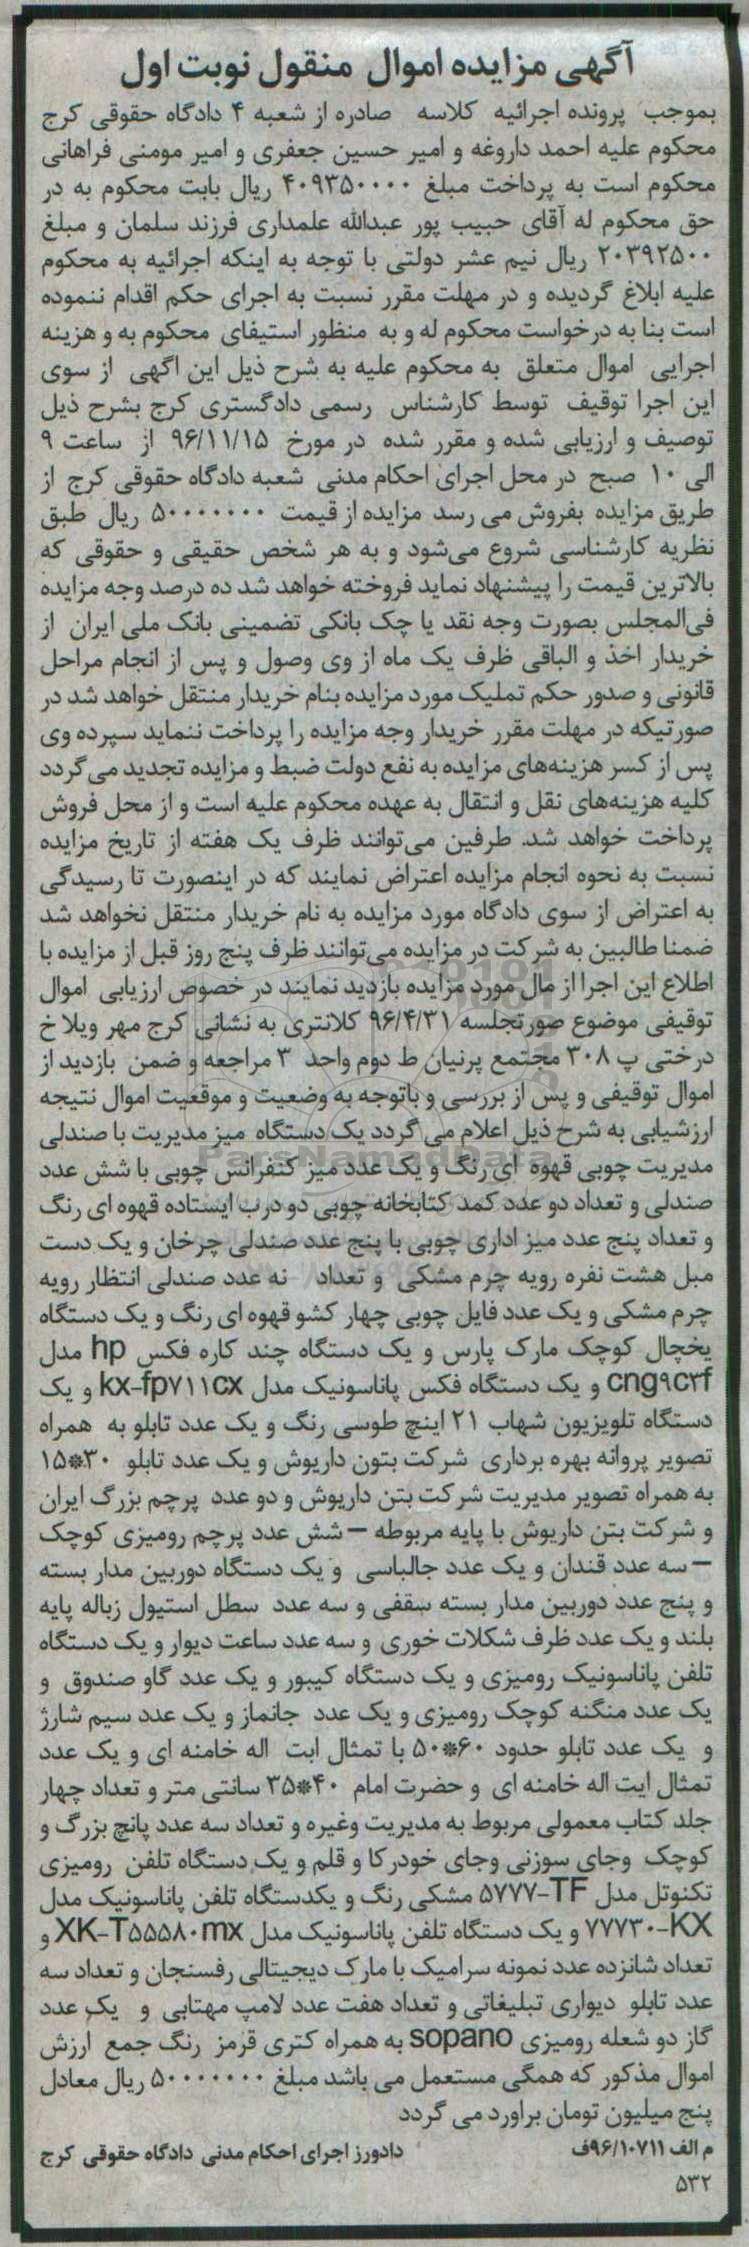 آگهی مزایده اموال منقول نوبت اول
بموجب پرونده اجرائیه کلاسه صادره از شعبه ۴ دادگاه حقوقی کرج
محکوم علیه احمد داروغه و امیر حسین جعفری و امیر مومنی فراهانی
محکوم است به پرداخت مبلغ ۴۰۹۳۵۰۰۰۰ ریال بابت محکوم به در
حق محکوم له آقای حبیب پور عبدالله علمداری فرزند سلمان و مبلغ
۲۰۳۹۲۵۰۰ ریال نیم عشر دولتی با توجه به اینکه اجرائیه به محکوم
علیه ابلاغ گردیده و در مهلت مقرر نسبت به اجرای حکم اقدام ننموده
است بنا به درخواست محکوم له و به منظور استیفای محکوم به و هزینه
اجرایی اموال متعلق به محکوم علیه به شرح ذیل این اگهی از سوی
این اجرا توقیف توسط کارشناس رسمی دادگستری کرج بشرح ذیل
توصیف و ارزیابی شده و مقرر شده در مورخ ۹۶/۱۱/۱۵ از ساعت ۹
الی ۱۰ صبح در محل اجرای احکام مدنی شعبه دادگاه حقوقی کرج از
طریق مزایده بفروش می رسد مزایده از قیمت ۵۰۰۰۰۰۰۰ ریال طبق
نظریه کارشناسی شروع می‌شود و به هر شخص حقیقی و حقوقی که
بالاترین قیمت را پیشنهاد نماید فروخته خواهد شد ده درصد وجه مزایده
فی‌المجلس بصورت وجه نقد یا چک بانکی تضمینی بانک ملی ایران از
خریدار اخذ و الباقی ظرف یک ماه از وی وصول و پس از انجام مراحل
قانونی و صدور حکم تملیک مورد مزایده بنام خریدار منتقل خواهد شد در
صورتیکه در مهلت مقرر خریدار وجه مزایده را پرداخت ننماید سپرده وی
پس از کسر هزینه‌های مزایده به نفع دولت ضبط و مزایده تجدید می گردد
کلیه هزینه‌های نقل و انتقال به عهده محکوم علیه است و از محل فروش
پرداخت خواهد شد. طرفین می‌توانند ظرف یک هفته از تاریخ مزایده
نسبت به نحوه انجام مزایده اعتراض نمایند که در اینصورت تا رسیدگی
به اعتراض از سوی دادگاه مورد مزایده به نام خریدار منتقل نخواهد شد
ضمنا طالبین به شرکت در مزایده می‌توانند ظرف پنج روز قبل از مزایده با
اطلاع این اجرا از مال مورد مزایده بازدید نمایند در خصوص ارزیابی اموال
توقیفی موضوع صورتجلسه ۹۶/۴/۳۱ کلانتری به نشانی کرج مهر ویلا خ
درختی پ ۳۰۸ مجتمع پرنیان ط دوم واحد ۳ مراجعه و ضمن بازدید از
اموال توقیفی و پس از بررسی و باتوجه به وضعیت و موقعیت اموال نتیجه
ارزشیابی به شرح ذیل اعلام می گردد یک دستگاه میز مدیریت با صندلی
مدیریت چوبی قهوه ای رنگ و یک عدد میز کنفرانس چوبی با شش عدد
صندلی و تعداد دو عدد کمد کتابخانه چوبی دو درب ایستاده قهوه ای رنگ
و تعداد پنج عدد میز اداری چوبی با پنج عدد صندلی چرخان و یک دست
مبل هشت نفره رویه چرم مشکی و تعداد نه عدد صندلی انتظار رویه
چرم مشکی و یک عدد فایل چوبی چهار کشو قهوه ای رنگ و یک دستگاه
یخچال کوچک مارک پارس و یک دستگاه چند کاره فکس hp مدل
cng۹c۳f و یک دستگاه فکس پاناسونیک مدل kx-fp۷۱۱cx و یک
دستگاه تلویزیون شهاب ۲۱ اینچ طوسی رنگ و یک عدد تابلو به همراه
تصویر پروانه بهره برداری شرکت بتون داریوش و یک عدد تابلو ۳۰*۱۵
به همراه تصویر مدیریت شرکت بتن داریوش و دو عدد پرچم بزرگ ایران
و شرکت بتن داریوش با پایه مربوطه – شش عدد پرچم رومیزی کوچک
– سه عدد قندان و یک عدد جالباسی و یک دستگاه دوربین مدار بسته
و پنج عدد دوربین مدار بسته سقفی و سه عدد سطل استیول زباله پایه
بلند و یک عدد ظرف شکلات خوری و سه عدد ساعت دیوار و یک دستگاه
تلفن پاناسونیک رومیزی و یک دستگاه کیبور و یک عدد گاو صندوق و
یک عدد منگنه کوچک رومیزی و یک عدد جانماز و یک عدد سیم شارژ
و یک عدد تابلو حدود ۶۰*۵۰ با تمثال ایت اله خامنه ای و یک عدد
تمثال ایت اله خامنه ای و حضرت امام ۴۰*۳۵ سانتی متر و تعداد چهار
جلد کتاب معمولی مربوط به مدیریت وغیره و تعداد سه عدد پانچ بزرگ و
کوچک وجای سوزنی وجای خودرکا و قلم و یک دستگاه تلفن رومیزی
تکنوتل مدل ۵۷۷۷-TF مشکی رنگ و یکدستگاه تلفن پاناسونیک مدل
۷۷۷۳۰-KX و یک دستگاه تلفن پاناسونیک مدل XK-T۵۵۵۸۰mx و
تعداد شانزده عدد نمونه سرامیک با مارک دیجیتالی رفسنجان و تعداد سه
عدد تابلو دیواری تبلیغاتی و تعداد هفت عدد لامپ مهتابی و یک عدد
گاز دو شعله رومیزی sopano به همراه کتری قرمز رنگ جمع ارزش
اموال مذکور که همگی مستعمل می باشد مبلغ ۵۰۰۰۰۰۰۰ ریال معادل
پنج میلیون تومان براورد می گردد
م الف ۹۶/۱۰۷۱۱ف دادورز اجرای احکام مدنی دادگاه حقوقی کرج
۵۳۲
ParsNamadData